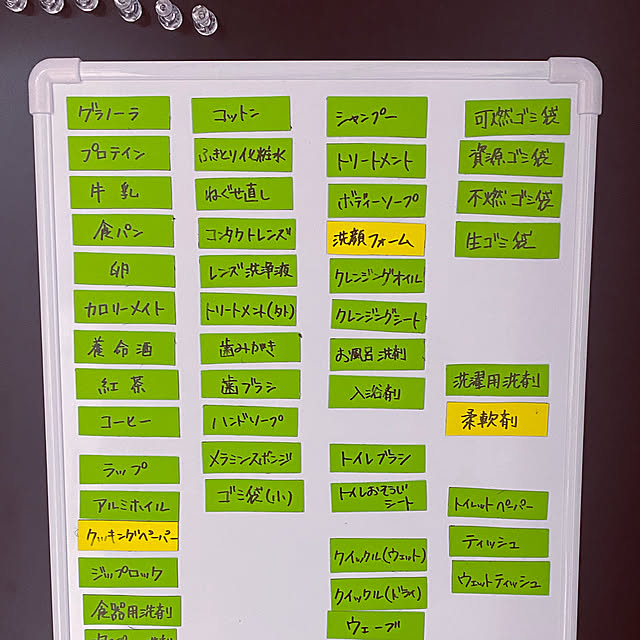 グラノーラ
プロテイン
牛乳
食パン
卵
カロリーメイト
養命酒
紅茶
コーヒー
ラップ
アルミホイル
クッキングペーパー
ジップロック
食器用洗剤
コットン
ふきとり化粧水
ねぐせ直し
コンタクトレンズ
レンズ洗浄液
トリートメント(外)
歯みがき
歯ブラシ
ハンドソープ
メラミンスポンジ
ゴミ袋(小)
シャンプー
トリートメント
ボディーソープ
洗顔フォーム
クレンジングオイル
クレンジングシート
お風呂洗剤
入浴剤
トイレブラシ
トイレおそうじ
シート
クイックル(ウェット)
クイックル(ドライ)
ウェーブ
可燃ゴミ袋
資源ゴミ袋
不燃ゴミ袋
生ゴミ袋
洗濯用洗剤
柔軟剤
トイレットペーパー
ティッシュ
ウェットティッシュ